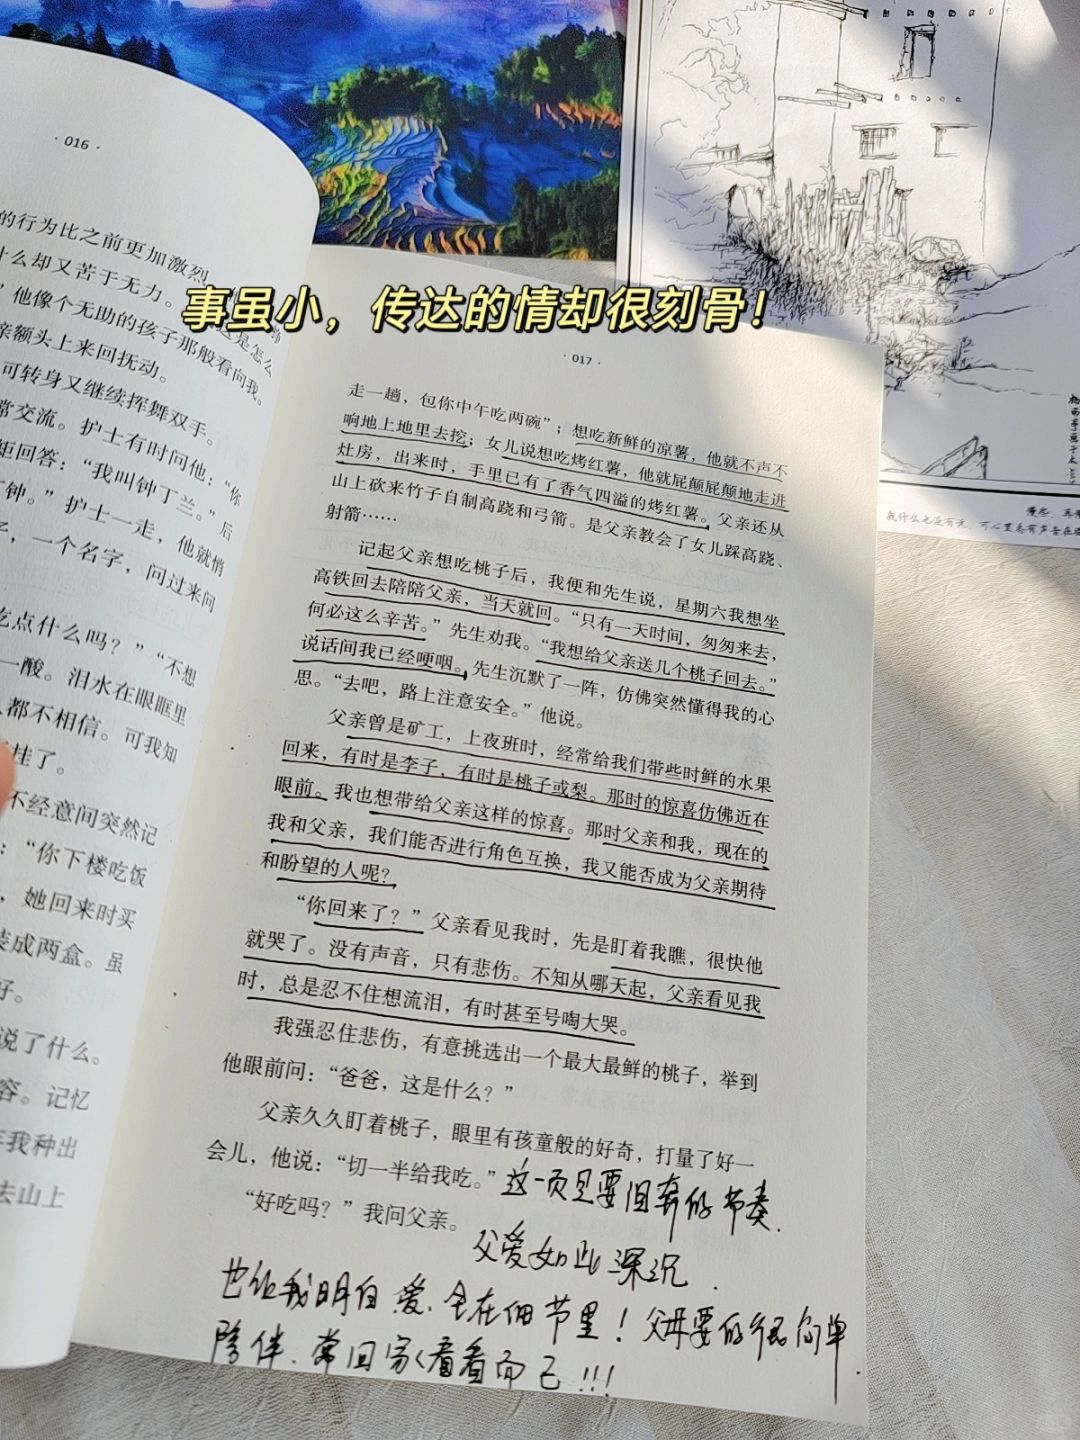 事虽小，传达的情却很刻骨！
· 016 ·
的行为比之前更加激烈
什么却又苦于无力。
这是怎么
”他像个无助的孩子那般看向我。
亲额头上来回抚动。
可转身又继续挥舞双手。
常交流。护士有时问他：“你
矩回答：“我叫钟丁兰。”后
丁钟。”护士一走，他就悄
字，一个名字，问过来问
吃点什么吗？”“不想
一酸。泪水在眼眶里
都不相信。可我知
挂了。
不经意间突然记
：“你下楼吃饭
，她回来时买
装成两盒。虽
好。
说了什么。
容。记忆
我种出
去山上
· 017 ·
走一趟，包你中午吃两碗”；想吃新鲜的凉薯，他就不声不
响地上地里去挖；女儿说想吃烤红薯，他就屁颠屁颠地走进
灶房，出来时，手里已有了香气四溢的烤红薯。父亲还从
山上砍来竹子自制高跷和弓箭。是父亲教会了女儿踩高跷、
射箭……
记起父亲想吃桃子后，我便和先生说，星期六我想坐
高铁回去陪陪父亲，当天就回。“只有一天时间，匆匆来去，
何必这么辛苦。”先生劝我。“我想给父亲送几个桃子回去。”
说话间我已经哽咽。先生沉默了一阵，仿佛突然懂得我的心
思。“去吧，路上注意安全。”他说。
父亲曾是矿工，上夜班时，经常给我们带些时鲜的水果
回来，有时是李子，有时是桃子或梨。那时的惊喜仿佛近在
眼前。我也想带给父亲这样的惊喜。那时父亲和我，现在的
我和父亲，我们能否进行角色互换，我又能否成为父亲期待
和盼望的人呢？
“你回来了？”父亲看见我时，先是盯着我瞧，很快他
就哭了。没有声音，只有悲伤。不知从哪天起，父亲看见我
时，总是忍不住想流泪，有时甚至号啕大哭。
我强忍住悲伤，有意挑选出一个最大最鲜的桃子，举到
他眼前问：“爸爸，这是什么？”
父亲久久盯着桃子，眼里有孩童般的好奇，打量了好一
会儿，他说：“切一半给我吃。”
“好吃吗？”我问父亲。
这一页是要泪奔的节奏.
父爱如此深沉.
也给我明白爱.全在细节里！父母要的很简单.
陪伴.常回家看看而已!!!
我什么也没有说，可心里总有声音在